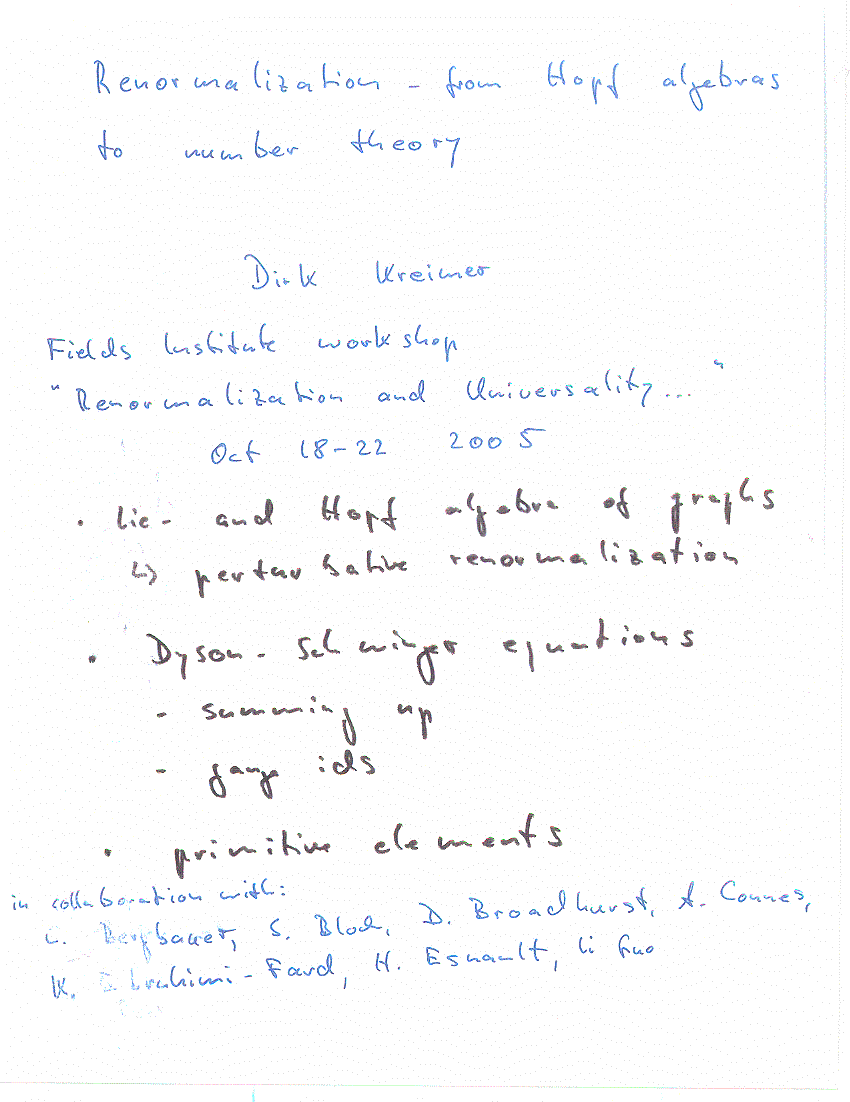 Renormalization - from Hopf algebras
to number theory
Dirk Kreimer
Fields Institute workshop
"Renormalization and Universality..."
Oct 18-22 2005
• Lie- and Hopf algebra of graphs
↳ perturbative renormalization
• Dyson-Schwinger equations
- summing up
- gauge ids
• primitive elements
in collaboration with:
C. Bergbauer, S. Bloch, D. Broadhurst, A. Connes,
K. Ebrahimi-Fard, H. Esnault, Li Guo